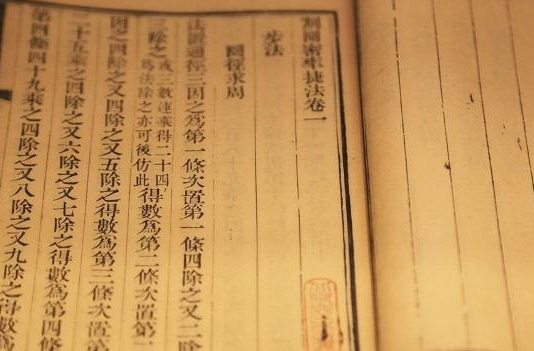 割圜密率捷法卷一
步法
圜徑求周
法置通徑三因之為第一條次置第一條四除之又二除
三除之或三數連乘得二十四為法除之亦可後仿此得數為第二條次置第二
因之四除之又四除之又五除之得數為第三條次置第
二十五乘之四除之又六除之又七除之得數為第四條
第四條四十九乘之四除之又八除之又九除之得數